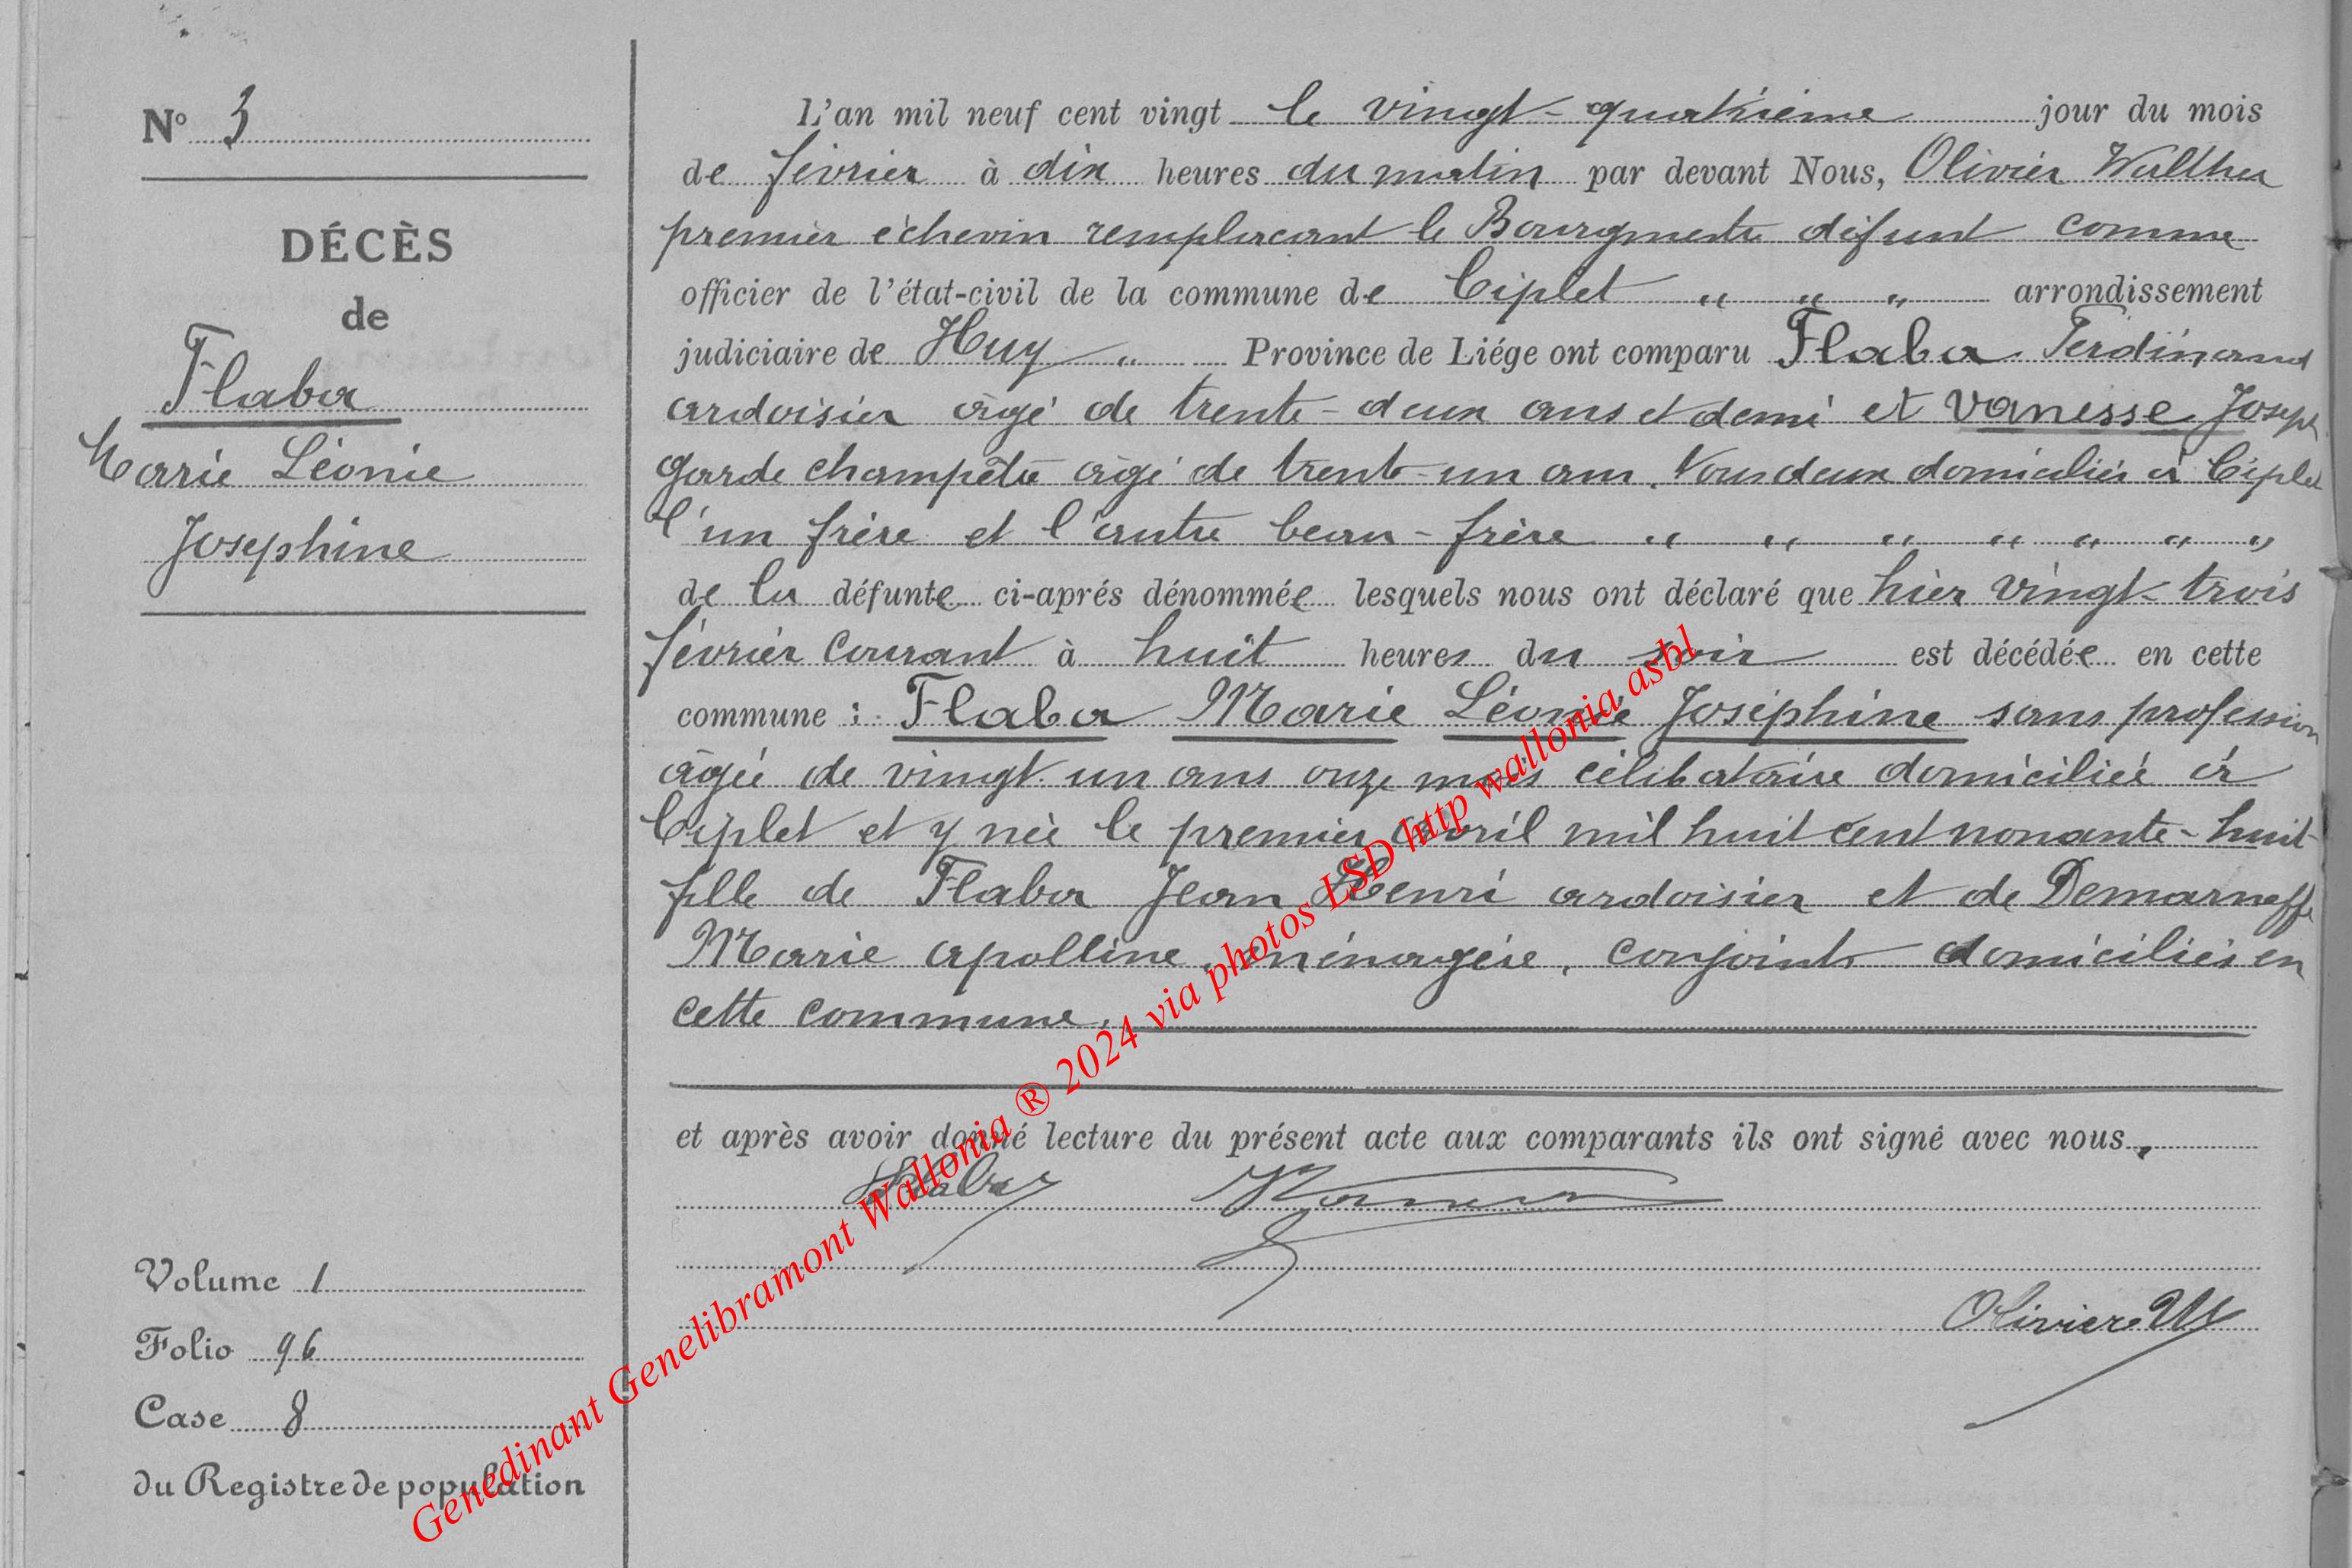 N° 3
DÉCÈS
de
Flaba
Marie Léonie
Josephine
Volume 1
Folio 96
Case 8
du Registre de population
L'an mil neuf cent vingt le vingt-quatrième jour du mois
de février à dix heures du matin par devant Nous, Olivier Walther
premier échevin remplacant le Bourgmestre défunt comme
officier de l'état-civil de la commune de Ciplet " " " arrondissement
judiciaire de Huy " Province de Liége ont comparu Flaba Ferdinand
ardoisier âgé de trente-deux ans et demi et Vanesse Joseph
garde champêtre âgé de trente-un ans. Tous deux domiciliés à Ciplet
l'un frère et l'autre beau-frère " " " " " " "
de la défunte ci-aprés dénommée lesquels nous ont déclaré que hier vingt-trois
février courant à huit heures du soir est décédée en cette
commune : Flaba Marie Léonie Joséphine sans profession
âgée de vingt-un ans onze mois célibataire domiciliée à
Ciplet et y née le premier avril mil huit cent nonante-huit
fille de Flaba Jean Henri ardoisier et de Demarneffe
Marie Apolline, ménagère, conjoints domiciliés en
cette commune.
et après avoir donné lecture du présent acte aux comparants ils ont signé avec nous.
Flaba
Olivier W
Genedinant Genelibramont Wallonia ® 2024 via photos LSD http wallonia asbl